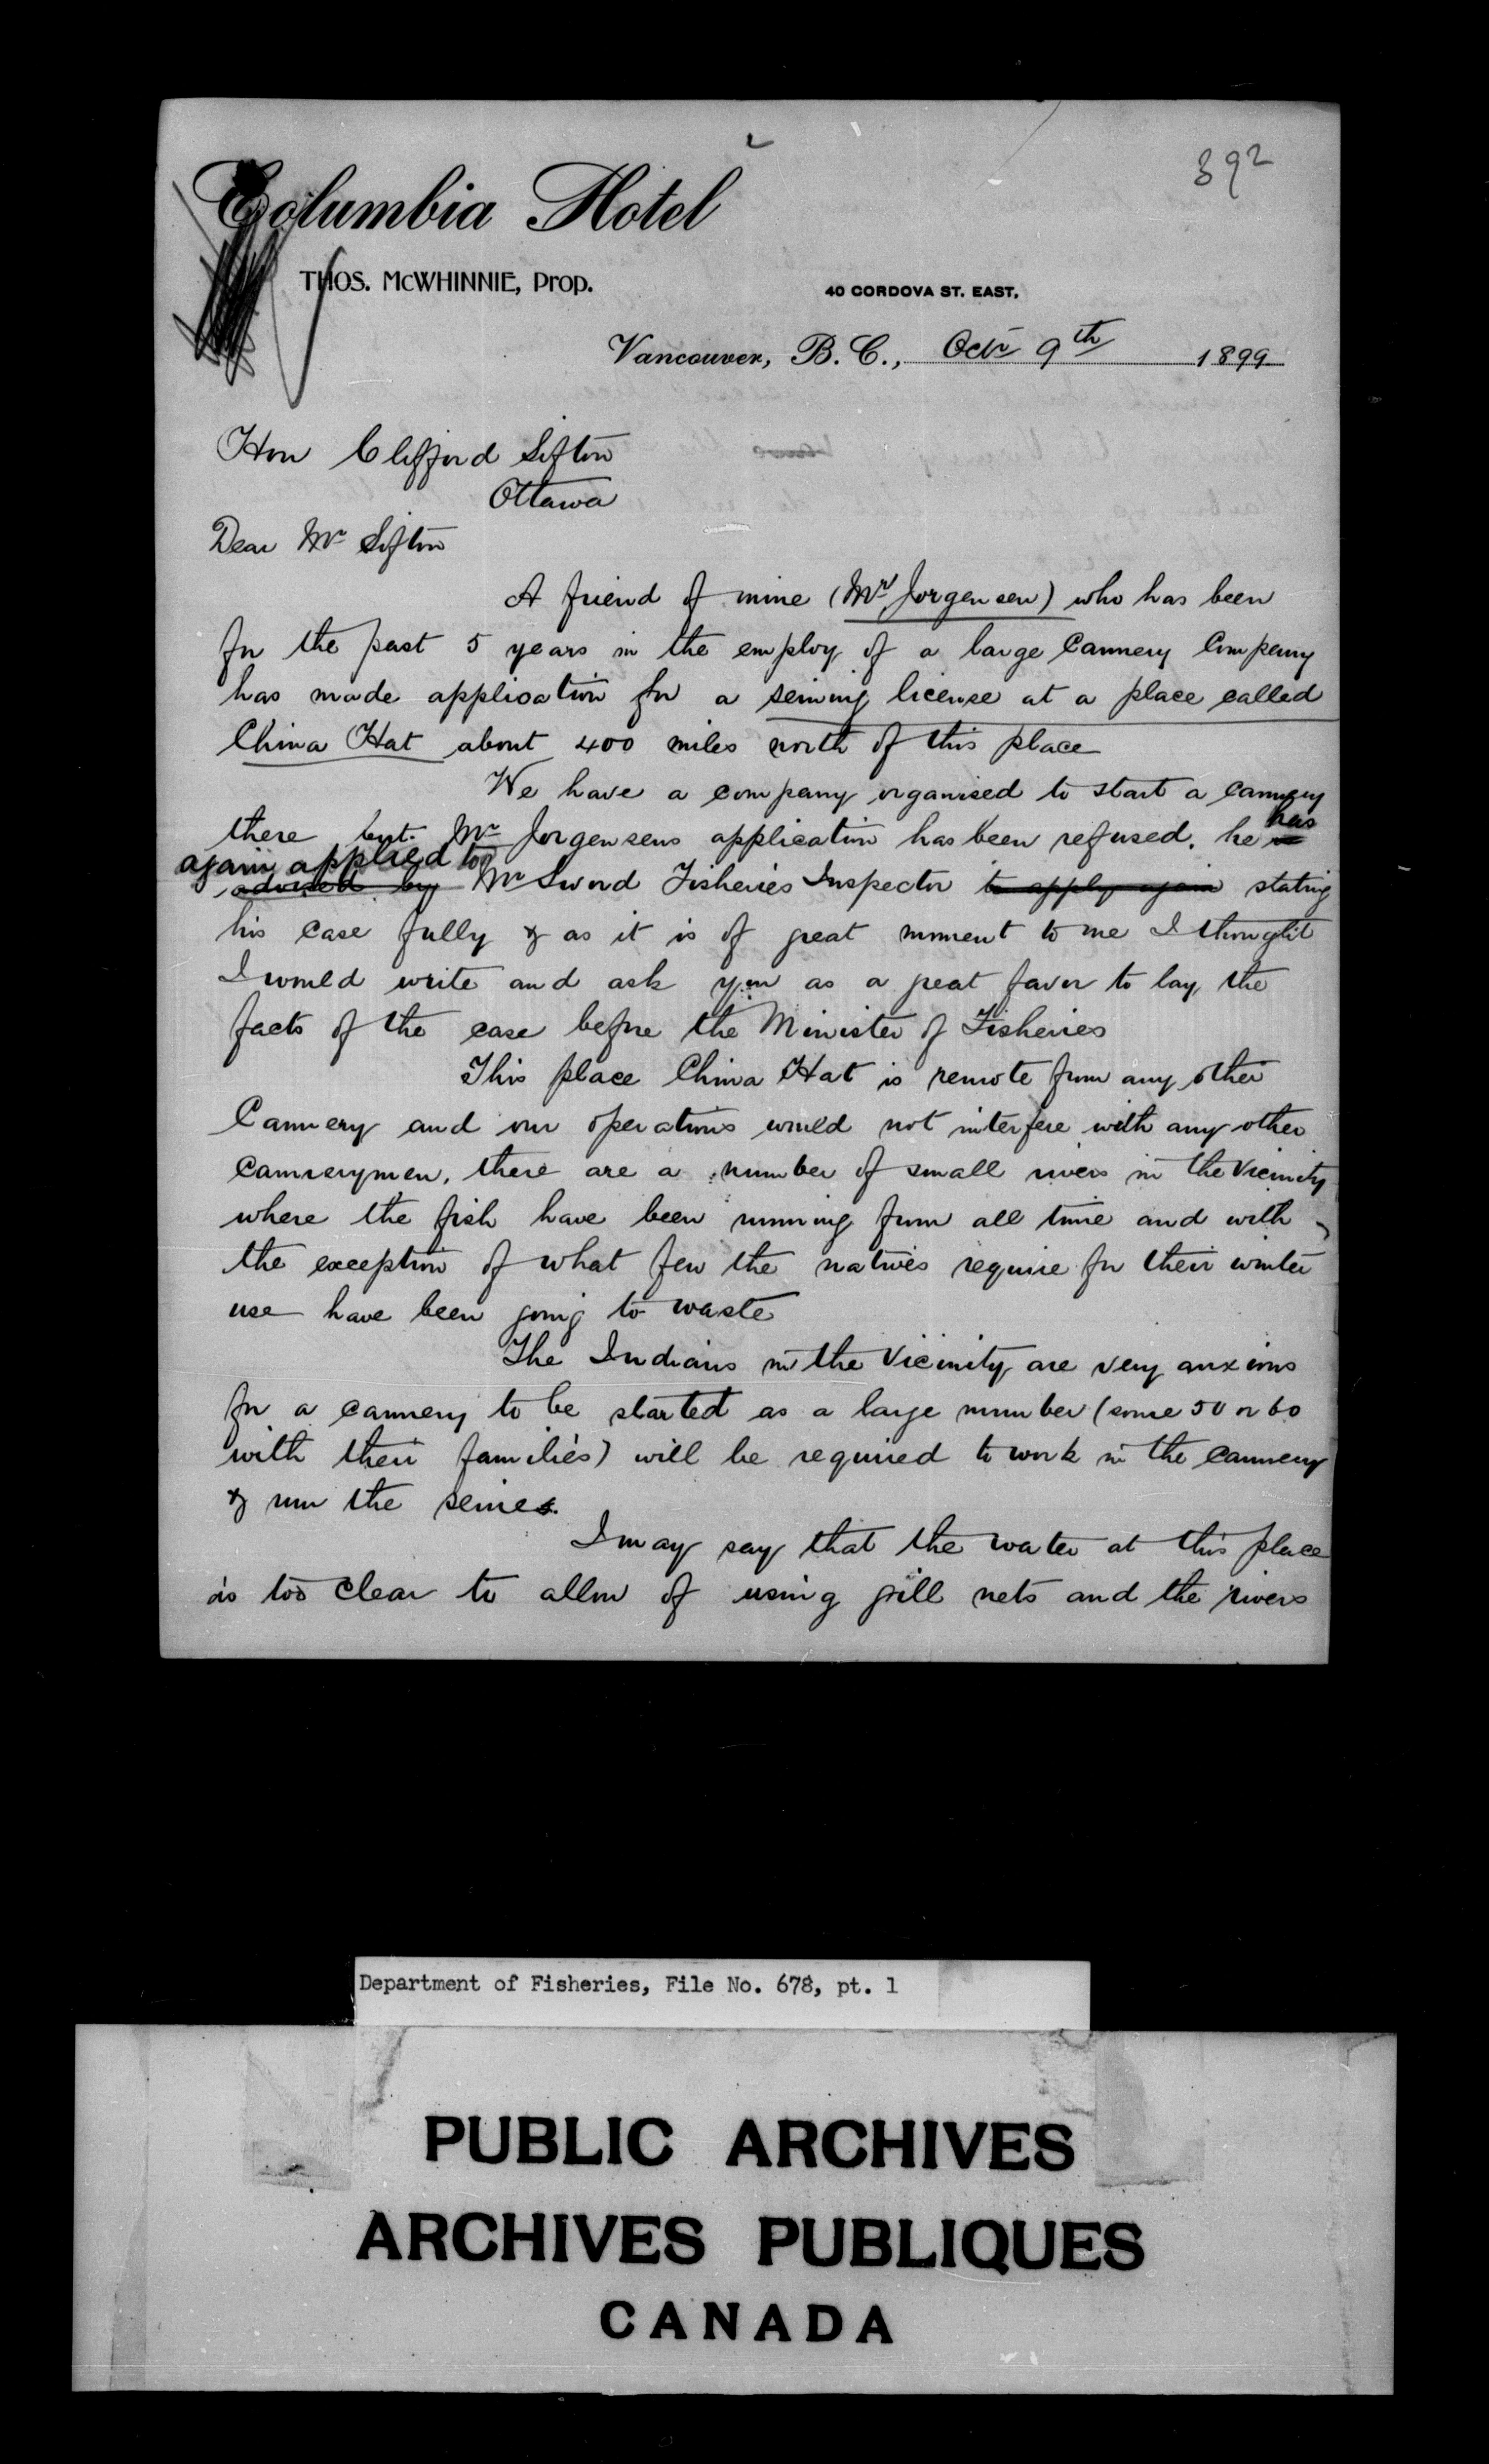 392
Columbia Hotel
THOS. McWHINNIE, Prop.
40 CORDOVA ST. EAST,
Vancouver, B. C., Octr 9th 1899
Hon Clifford Sifton
Ottawa
Dear Mr Sifton
A friend of mine (Mr Jorgensen) who has been
for the past 5 years in the employ of a large Cannery Company
has made application for a seining license at a place called
China Hat about 400 miles north of this place
We have a company organised to start a cannery
there but Mr Jorgensens application has been refused. he is has
again applied to
advised by Mr Sword Fisheries Inspector to apply again stating
his case fully & as it is of great moment to me I thought
I would write and ask you as a great favor to lay the
facts of the case before the Minister of Fisheries
This place China Hat is remote from any other
Cannery and our operations would not interfere with any other
Cannerymen, there are a number of small rivers in the Vicinity
where the fish have been running from all time and with
the exception of what few the natives require for their winter
use have been going to waste
The Indians in the Vicinity are very anxious
for a cannery to be started as a large number (some 50 or 60
with their families) will be required to work in the cannery
& run the seines.
I may say that the water at this place
is too clear to allow of using gill nets and the rivers
Department of Fisheries, File No. 678, pt. 1
PUBLIC ARCHIVES
ARCHIVES PUBLIQUES
CANADA